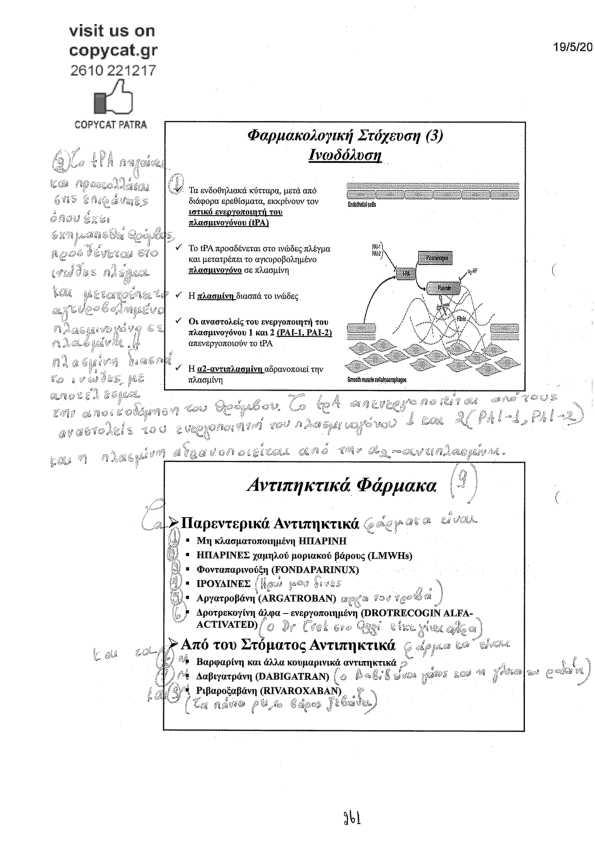 visit us on
copycat.gr
2610 221217
COPYCAT PATRA
19/5/20
Φαρμακολογική Στόχευση (3)
Ινωδόλυση
Τα ενδοθηλιακά κύτταρα, μετά από
διάφορα ερεθίσματα, εκκρίνουν τον
ιστικό ενεργοποιητή του
πλασμινογόνου (tPA)
Το tPA προσδένεται στο ινώδες πλέγμα
και μετατρέπει το αγκυροβολημένο
πλασμινογόνο σε πλασμίνη
Η πλασμίνη διασπά το ινώδες
Οι αναστολείς του ενεργοποιητή του
πλασμινογόνου 1 και 2 (PAI-1, PAI-2)
απενεργοποιούν το tPA
Η α2-αντιπλασμίνη αδρανοποιεί την
πλασμίνη
Endothelial cells
PAI-1
PAI-2
t-PA
Plasminogen
Plasmin
Fibrin
Smooth muscle cells/macrophages
Το tPA
και προσκολλάται
στις επιφάνειες
όπου έχει
σχηματισθεί θρόμβος,
προσδένεται στο
ινώδες πλέγμα
και μετατρέπει το
αγκυροβολημένο
πλασμινογόνο σε
πλασμίνη. Η
πλασμίνη διασπά
το ινώδες, με
αποτέλεσμα
την αποικοδόμηση του θρόμβου. Το tPA απενεργοποιείται από τους
αναστολείς του ενεργοποιητή του πλασμινογόνου 1 και 2 (PAI-1, PAI-2)
και η πλασμίνη αδρανοποιείται από την α2-αντιπλασμίνη.
Αντιπηκτικά Φάρμακα (9)
Τα Παρεντερικά Αντιπηκτικά φάρμακα είναι
1 Μη κλασματοποιημένη ΗΠΑΡΙΝΗ
2 ΗΠΑΡΙΝΕΣ χαμηλού μοριακού βάρους (LMWHs)
3 Φονταπαρινούξη (FONDAPARINUX)
4 ΙΡΟΥΔΙΝΕΣ (Ηρώ μου δίνεις
5 Αργατροβάνη (ARGATROBAN)
6 Δροτρεκογίνη άλφα – ενεργοποιημένη (DROTRECOGIN ALFA-
ACTIVATED)
και τα Από του Στόματος Αντιπηκτικά φάρμακα είναι
Βαρφαρίνη και άλλα κουμαρινικά αντιπηκτικά
Δαβιγατράνη (DABIGATRAN)
και 3 Ριβαροξαβάνη (RIVAROXABAN)
261